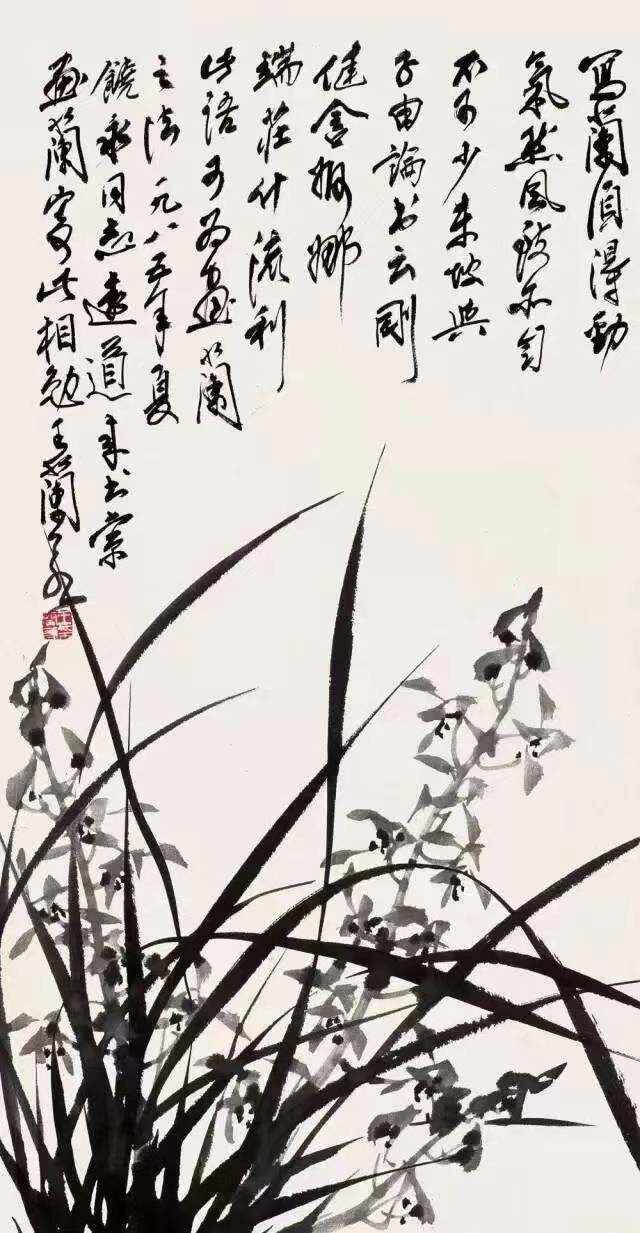 寫蘭須得勁
氣然風致亦自
不可少東坡與
子由論书云剛
健含婀娜
端莊什流利
此語可為畫蘭
之法一九八五年夏
饒永同志遠道来书索
畫蘭寄此相勉王蘭若